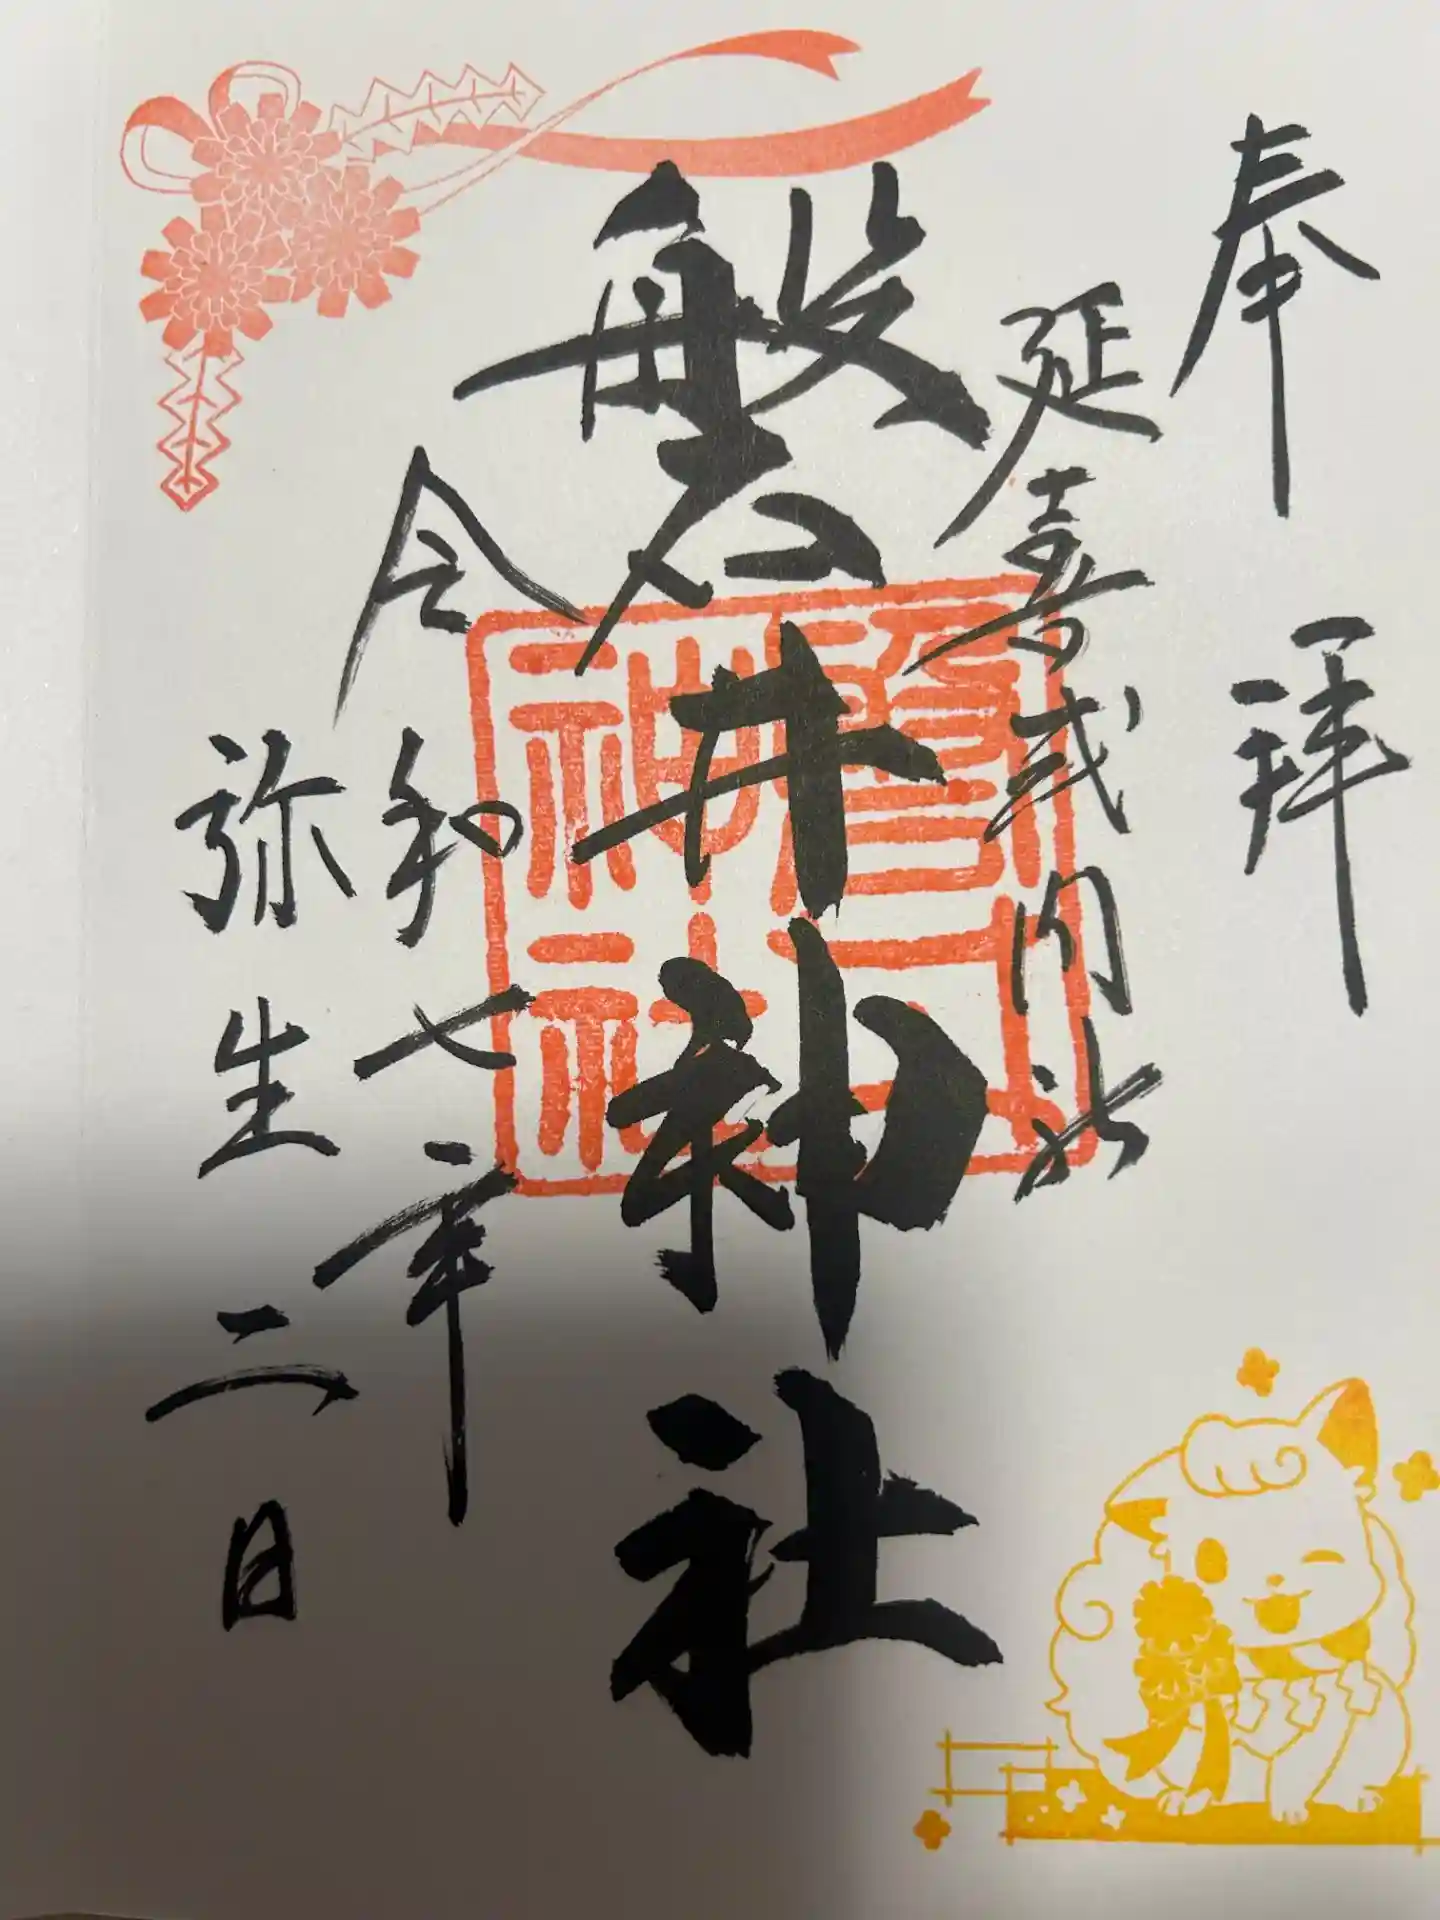 奉拝
延喜式内社
磐井神社
令和七年
弥生二日
磐井
神社